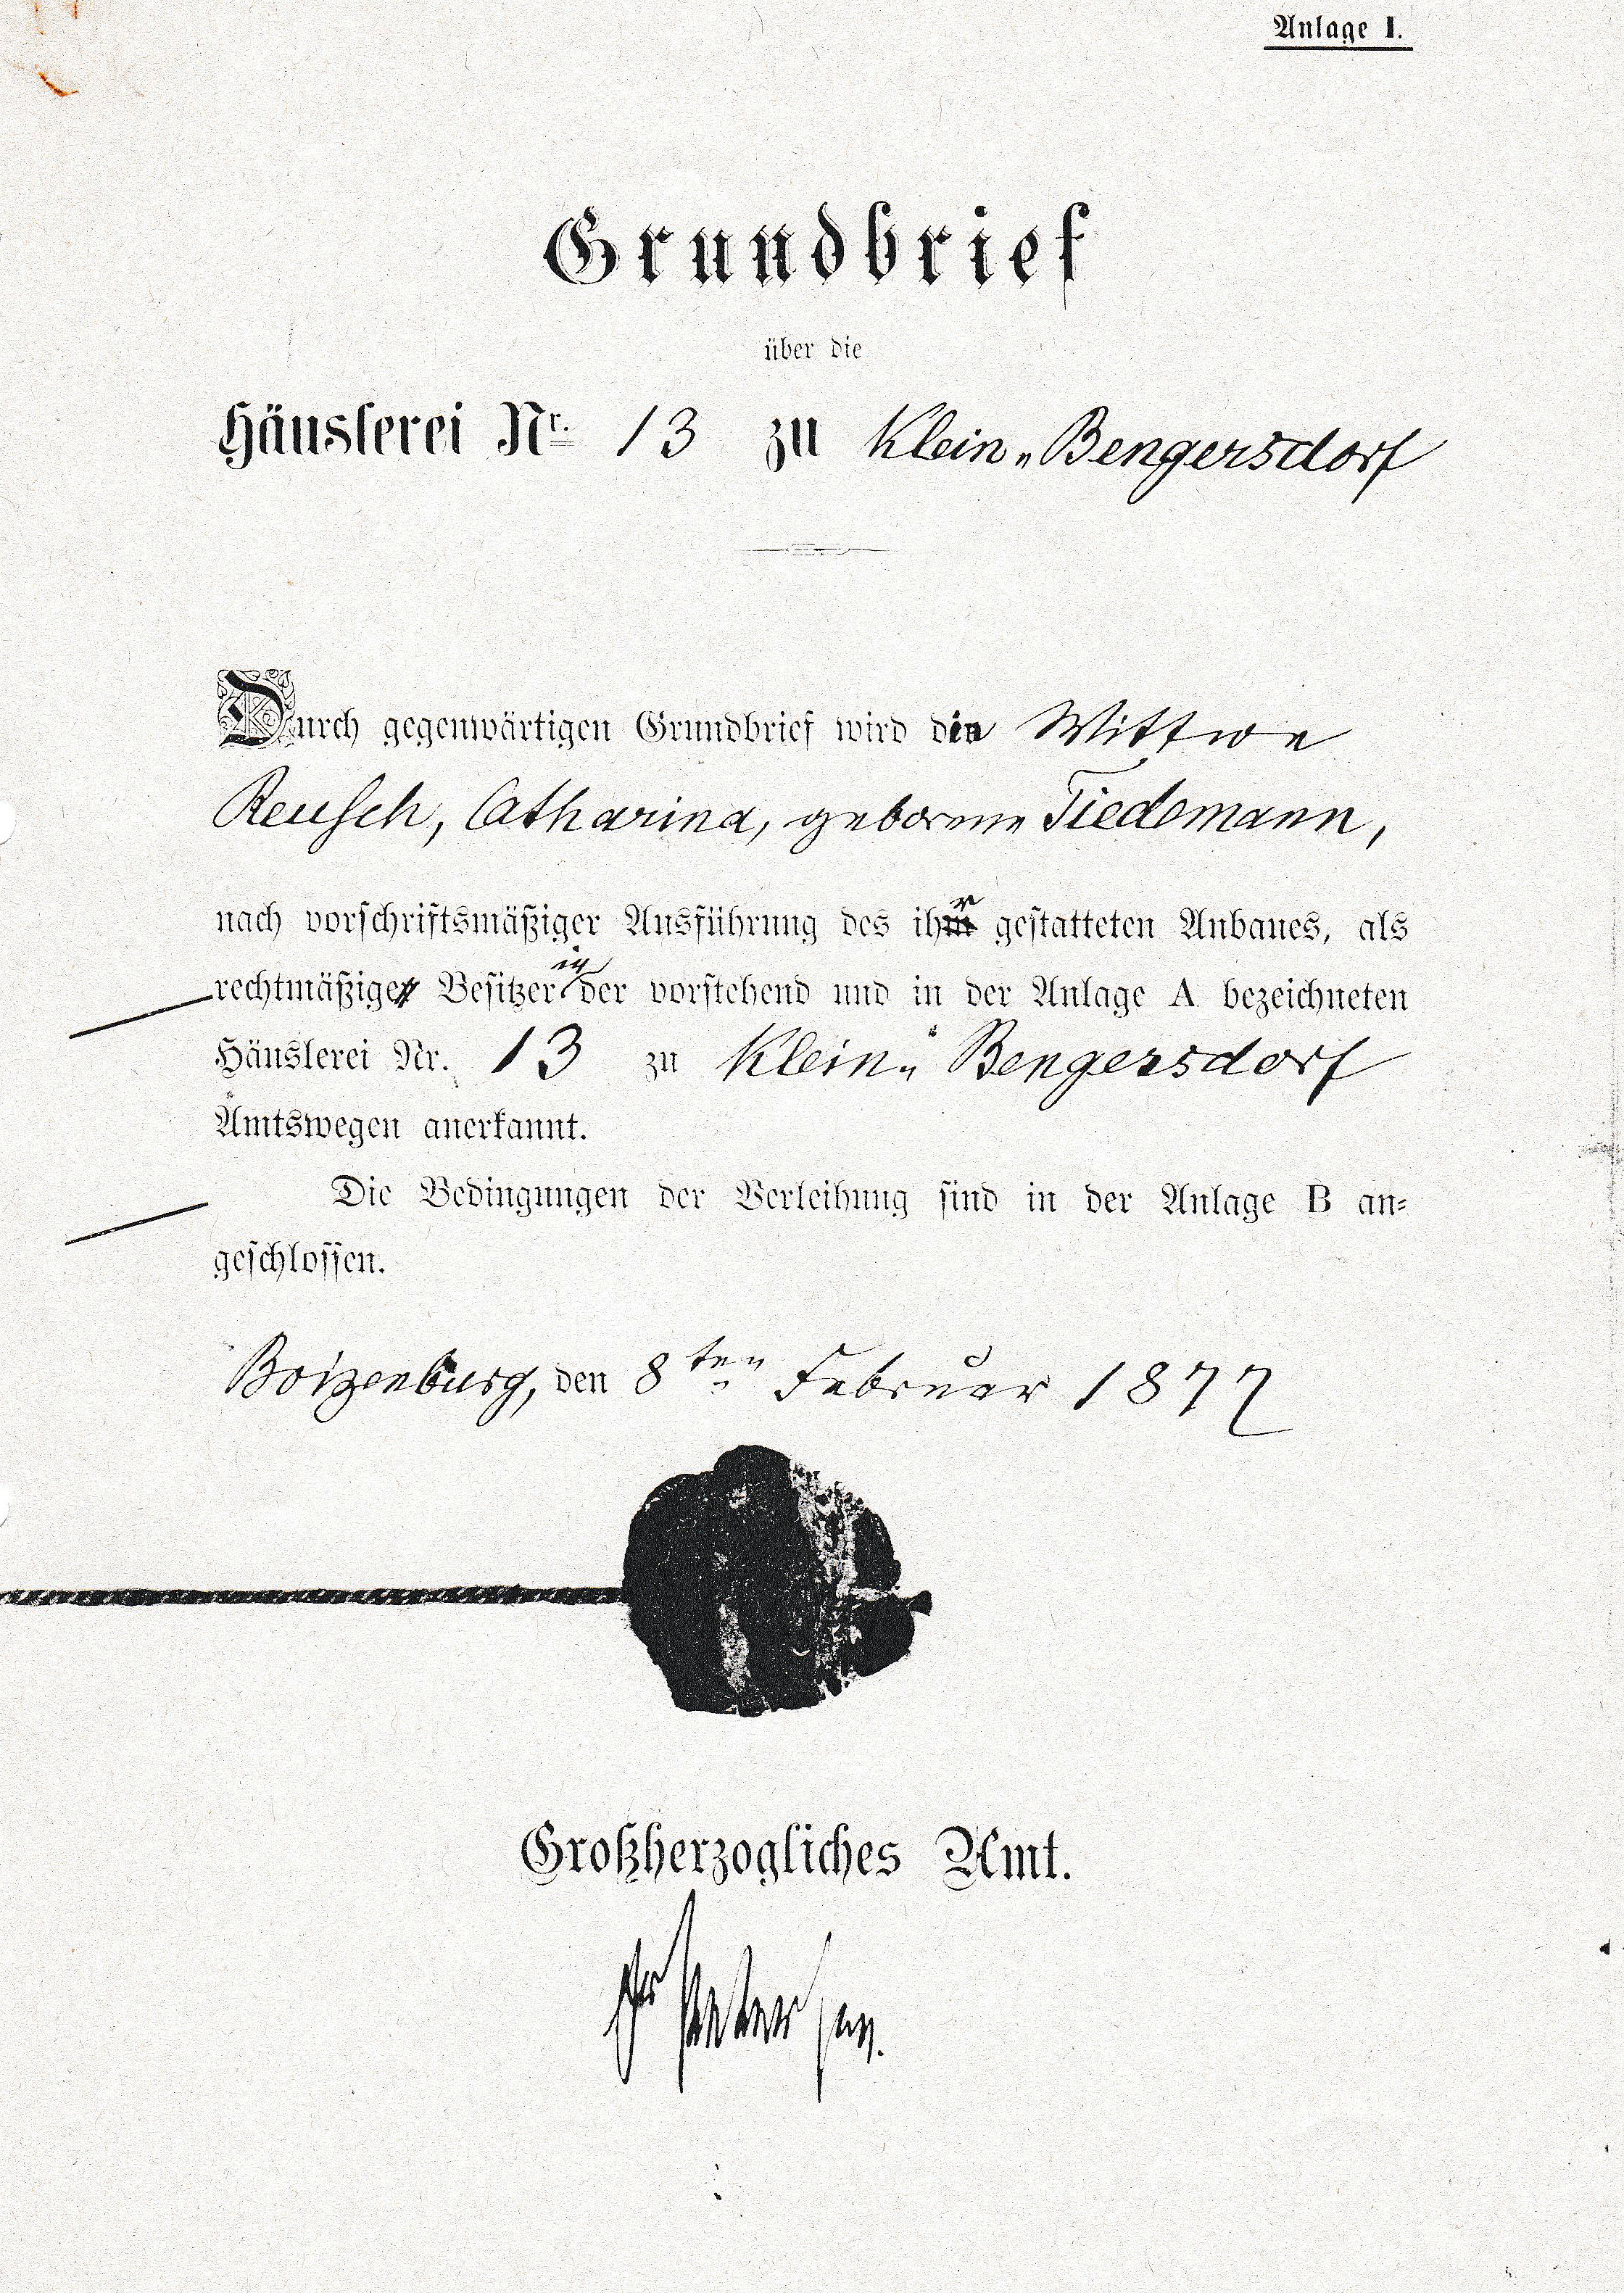 Anlage I.
Grundbrief
über die
Häuslerei Nr. 13 zu Klein-Bengersdorf
Durch gegenwärtigen Grundbrief wird die Wittwe
Reusch, Catharina, geborene Tiedemann,
nach vorschriftsmäßiger Ausführung des ihr gestatteten Anbaues, als
rechtmäßige Besitzerin der vorstehend und in der Anlage A bezeichneten
Häuslerei Nr. 13 zu Klein-Bengersdorf
Amtswegen anerkannt.
Die Bedingungen der Verleihung sind in der Anlage B an-
geschlossen.
Boizenburg, den 8ten Februar 1877
Großherzogliches Amt.